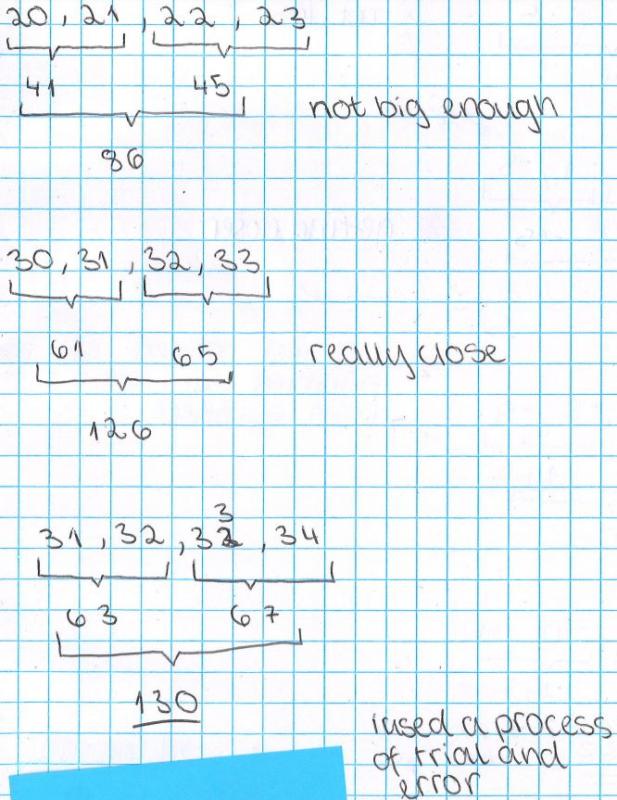 20, 21, 22, 23
41 45
not big enough
86
30, 31, 32, 33
61 65
really close
126
3
31, 32, 32, 34
63 67
130
i used a process
of trial and
error